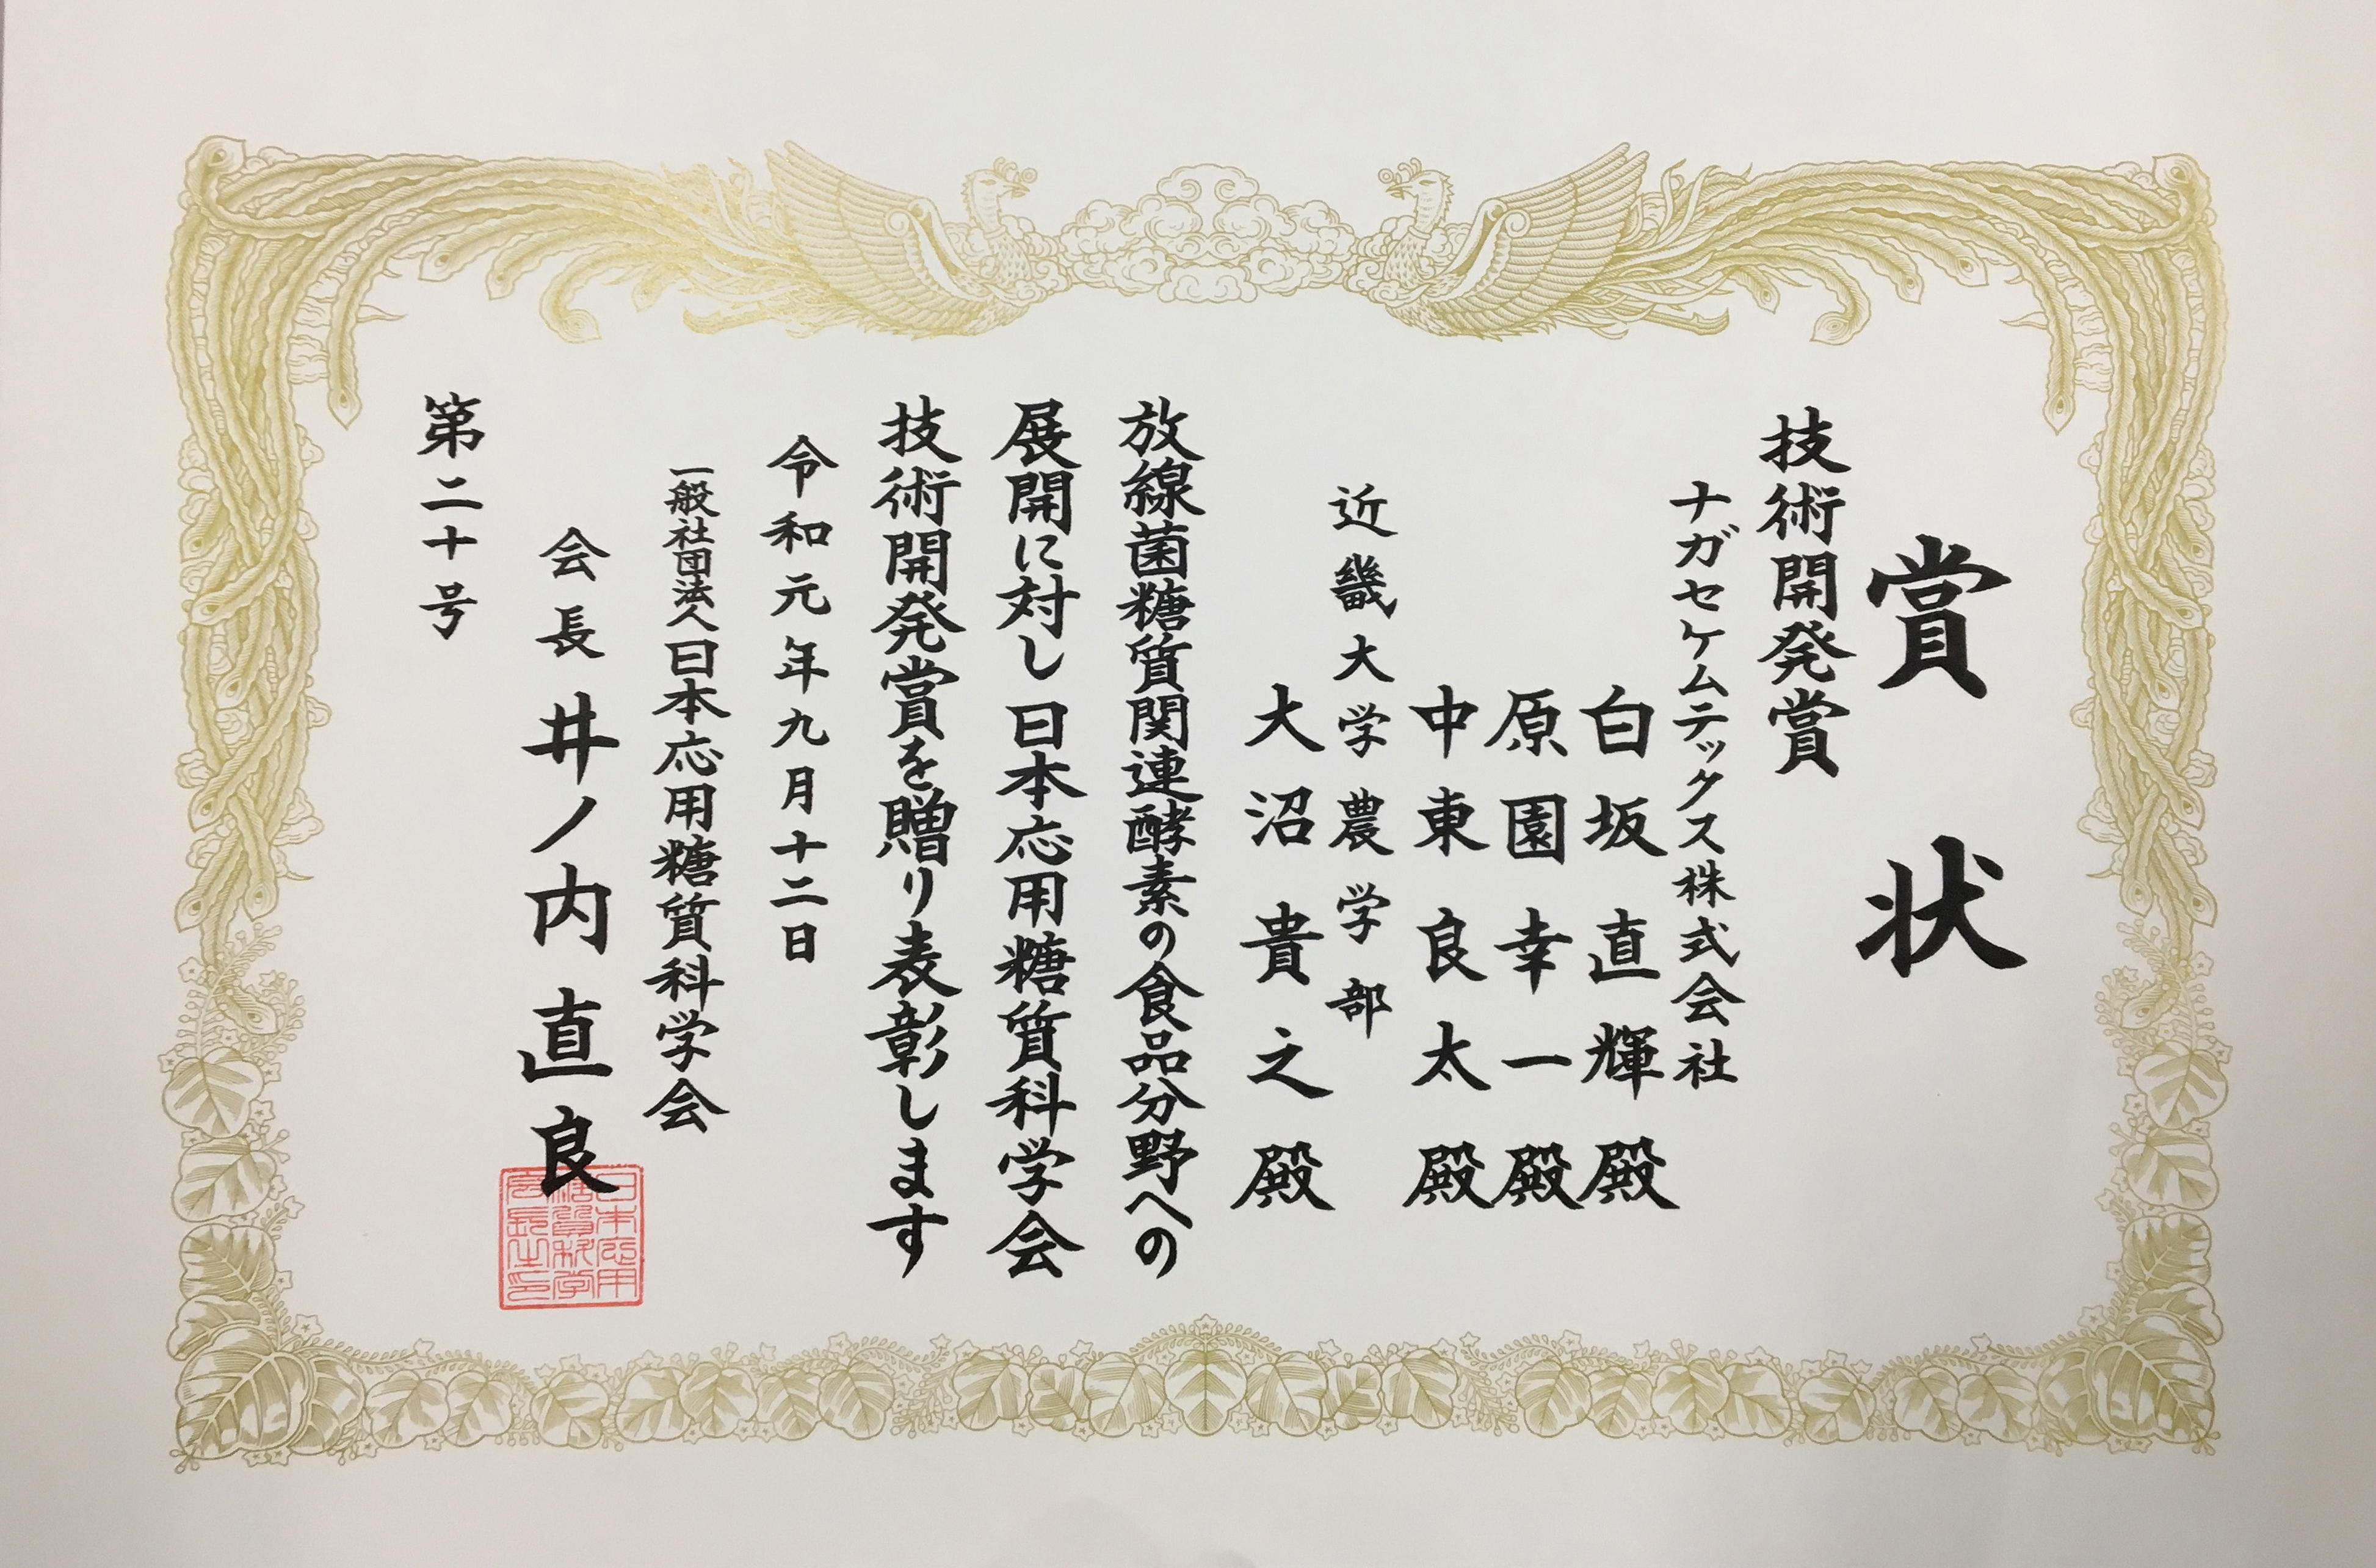 賞状
技術開発賞
ナガセケムテックス株式会社
白坂直輝殿
原園幸一殿
中東良太殿
近畿大学農学部
大沼貴之殿
放線菌糖質関連酵素の食品分野への
展開に対し日本応用糖質科学会
技術開発賞を贈り表彰します
令和元年九月十二日
一般社団法人日本応用糖質科学会
会長井ノ内直良
日本応用
糖質科学
会長之印
第二十号